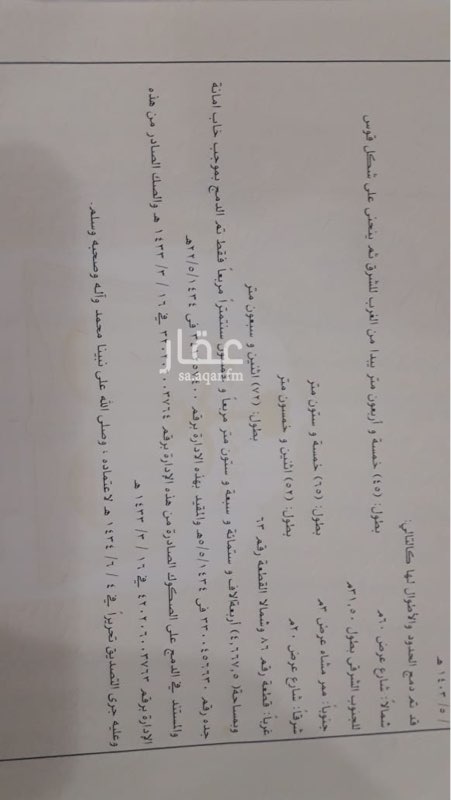 / ٥ / ١٤٠٣ هـ
قد تم دمج الحدود والأطوال لها كالتالي:
شمالاً: شارع عرض ٦٠م بطول: (٤٥) خمسة و أربعون متر يبدا من الغرب للشرق ثم ينحني على شكل قوس
للجنوب الشرقي بطول ٢١,٥٠م
جنوبا: ممر مشاه عرض ٣م بطول: (٦٥) خمسة و ستون متر
شرقا: شارع عرض ٢٠م بطول: (٥٢) اثنين و خمسون متر
غربا: قطعة رقم ٨٦ وشمالا القطعة رقم ٦٣ بطول: (٧٢) اثنين و سبعون متر
وبمساحة( ٤,٦٦٧,٥) أربعةالاف و ستمائة و سبعة و ستون متر مربعاً و سنتمتراً مربعاً فقط تم الدمج بموجب خاب امانة
جده رقم ٣٣٠٠٤٥٦٦٣٠ في ٥/٥/١٤٣٤هـ والمقيد بهذه الإدارة برقم في ٢٢/٥/١٤٣٤هـ
والمستند في الدمج على الصكوك الصادرة من هذه الإدارة برقم في ١٦ / ٣ / ١٤٣٣ هـ والصك الصادر من هذه
الإدارة برقم ٤٢٠٢٠٦٠٠٣٧٦٣ في ١٦ / ٣ / ١٤٣٣ هـ
وعليه جرى التصديق تحريراً في ٤ / ٦ / ١٤٣٤ هـ لاعتماده ، وصلى الله على نبينا محمد وآله وصحبه وسلم.
عقار
sa.aqar.fm